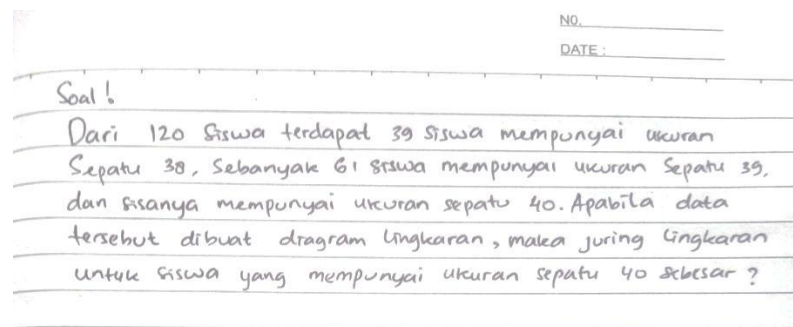 NO.
DATE :
Soal !
Dari 120 Siswa terdapat 39 siswa mempunyai ukuran
Sepatu 38, Sebanyak 61 siswa mempunyai ukuran Sepatu 39,
dan sisanya mempunyai ukuran sepatu 40. Apabila data
tersebut dibuat diagram lingkaran, maka juring lingkaran
untuk siswa yang mempunyai ukuran sepatu 40 sebesar ?